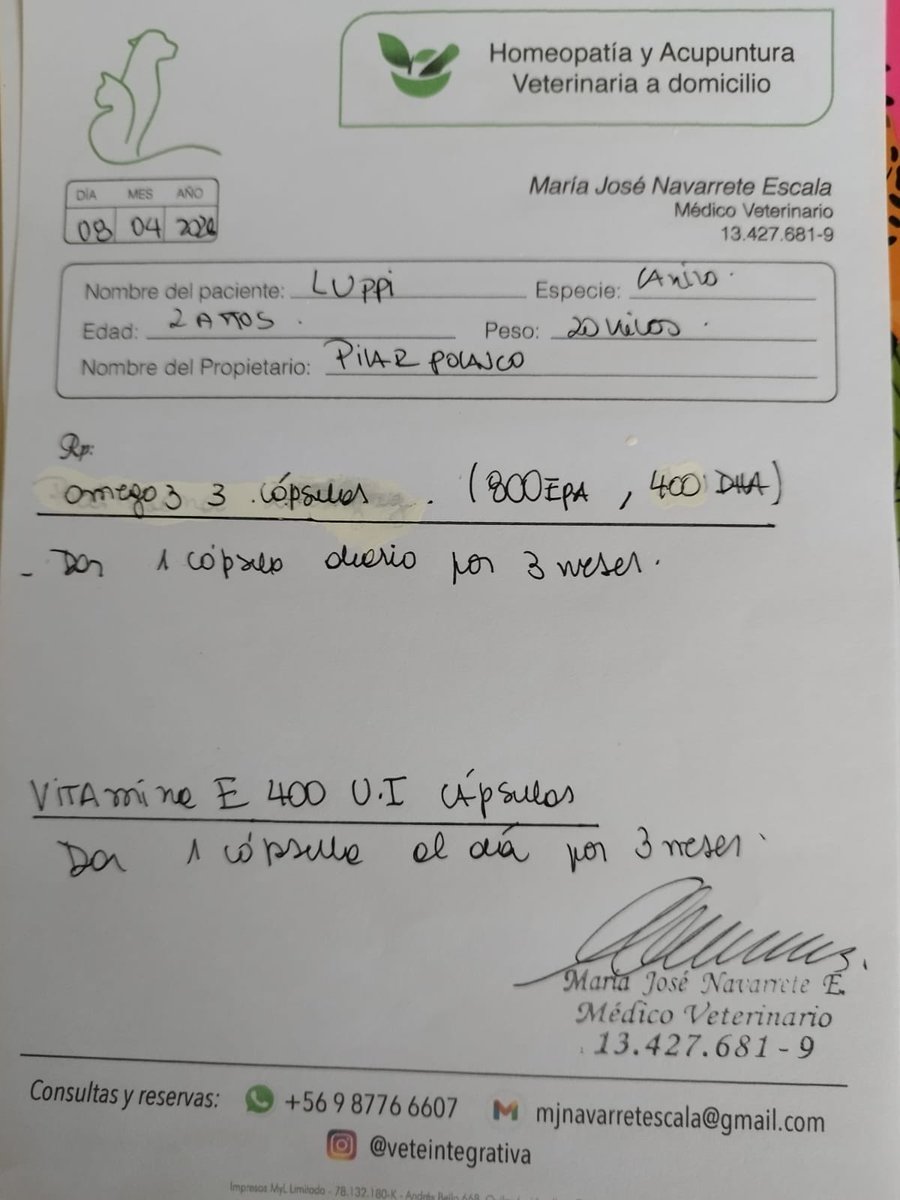 Homeopatía y Acupuntura
Veterinaria a domicilio
María José Navarrete Escala
Médico Veterinario
13.427.681-9
DÍA MES AÑO
08 04 2024
Nombre del paciente: Luppi Especie: Canino.
Edad: 2 años. Peso: 20 kilos.
Nombre del Propietario: Pilar Polanco
Rp:
Omega 3 3 cápsulas. (800 EPA, 400 DHA)
- Dar 1 cápsula diario por 3 meses.
Vitamina E 400 U.I cápsulas
Dar 1 cápsula al día por 3 meses.
María José Navarrete E.
Médico Veterinario
13.427.681-9
Consultas y reservas: +56 9 8776 6607 mjnavarretescala@gmail.com
@veteintegrativa
Impresos MyL Limitada - 78.132.180-K - Andrés Bello 668,